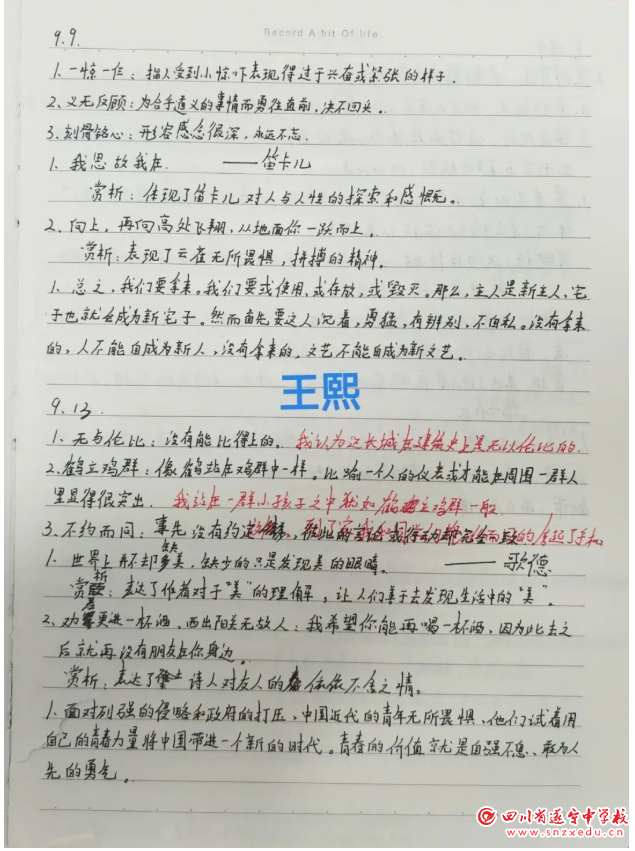 Record A bit Of life
9.9.
1.一惊一乍：指人受到小惊吓表现得过于兴奋或紧张的样子.
2、义无反顾：为合乎道义的事情而勇往直前，决不回头。
3.刻骨铭心：形容感念很深，永远不忘.
1.我思故我在. ——笛卡儿
赏析：体现了笛卡儿对人与人性的探索和感慨。
2.向上，再向高处飞翔，从地面你一跃而上。
赏析：表现了云雀无所畏惧，拼搏的精神。
1.总之，我们要拿来。我们要或使用、或存放，或毁灭。那么，主人是新主人、宅
子也就会成为新宅子。然而首先要这人沉着，勇猛，有辨别，不自私。没有拿来
的，人不能自成为新人，没有拿来的，文艺不能自成为新文艺。
王熙
9.13.
1.无与伦比：没有能比得上的。我认为这长城在建筑史上是无以伦比的.
2.鹤立鸡群：像鹤站在鸡群中一样。比喻一个人的仪表或才能在周围一群人
里显得很突出. 我站在一群小孩子之中犹如鹤立鸡群一般.
3.不约而同：事先没有约 而同的拿起了手机
1.世界上并不却缺乏美，缺少的只是发现美的眼睛。 ——歌德
赏析：表达了作者对于"美"的理解，让人们善于去发现生活中的"美"。
2.劝君更进一杯酒，西出阳关无故人：我希望你能再喝一杯酒，因为此去之
后就再没有朋友在你身边。
赏析：表达了诗人对友人的依依不舍之情。
1.面对列强的侵略和政府的打压，中国近代的青年无所畏惧，他们试着用
自己的青春力量将中国带进一个新的时代。青春的价值就是自强不息、敢为人
先的勇气。
四川省遂宁中学校
www.snzxedu.cn